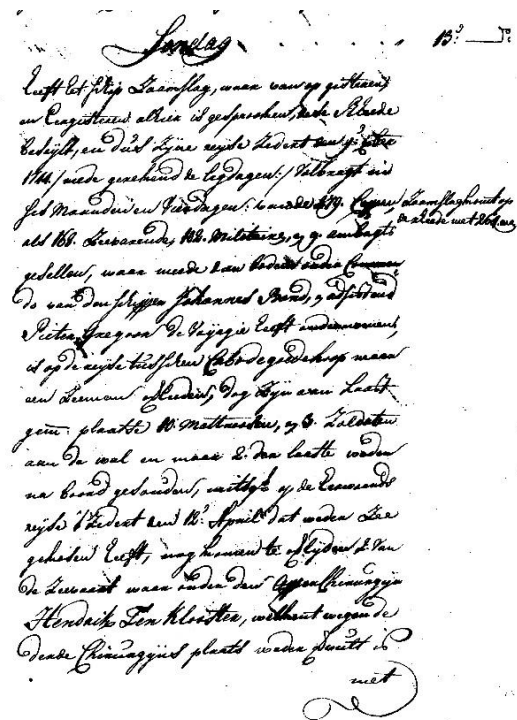 Sondag 13.=
heeft het schip Zaamslag, waar van op gisteren
en Eergisteren alhier is gesprooken, dese Rheede
beseijlt, en dus Zijne reijse Zedert den
1744 / mede gereekend de legdagen: / volbragt in
ses Maanden en dagen: van de 279. Coppen, Zaamslag komt op
de rheede met 261. en
als 168. Zeevarende, 102. Militaire, en 9. ambagts
gesellen, waar meede dien bodem onder Comman
do van den schipper Johannes Bond, en adsistend
Pieter Gregoor de Voijagie heeft ondernomen,
is op de reijse tusschen Cabo de goede hoop maar
een Zeeman overleeden, dog Zijn aan Laast
gem: plaatse 10. Mattroosen, en 3. Zoldaten
aan de wal en maar 2. der laatste weder
na boord gesonden, mitsg:s op de Herwaerds
reijse 't Zedert den 12:' April dat weder Zee
gekosen heeft, nog komen te overlijden 2. van
de Zeevaart waar onder den Chirurgijn
Hendrik Ten Klooster, welkent wegen de
derde Chirurgijns plaats weder is
met